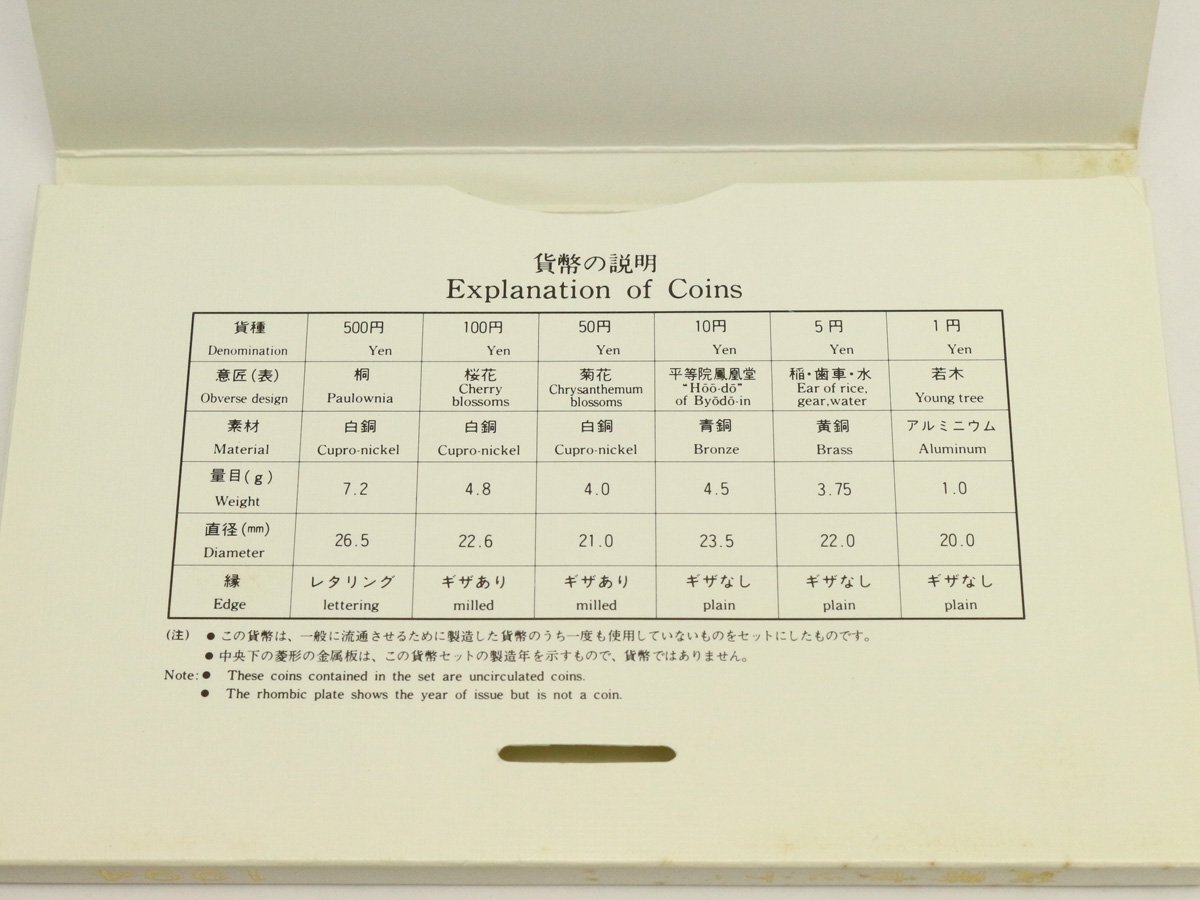 貨幣の説明
Explanation of Coins
貨種 500円 100円 50円 10円 5円 1円
Denomination Yen Yen Yen Yen Yen Yen
意匠(表) 桐 桜花 菊花 平等院鳳凰堂 稲・歯車・水 若木
Obverse design Paulownia Cherry blossoms Chrysanthemum blossoms “Hōō-dō” of Byōdō-in Ear of rice, gear,water Young tree
素材 白銅 白銅 白銅 青銅 黄銅 アルミニウム
Material Cupro-nickel Cupro-nickel Cupro-nickel Bronze Brass Aluminum
量目(g) 7.2 4.8 4.0 4.5 3.75 1.0
Weight
直径(mm) 26.5 22.6 21.0 23.5 22.0 20.0
Diameter
縁 レタリング ギザあり ギザあり ギザなし ギザなし ギザなし
Edge lettering milled milled plain plain plain
(注) ● この貨幣は、一般に流通させるために製造した貨幣のうち一度も使用していないものをセットにしたものです。
● 中央下の菱形の金属板は、この貨幣セットの製造年を示すもので、貨幣ではありません。
Note: ● These coins contained in the set are uncirculated coins.
● The rhombic plate shows the year of issue but is not a coin.